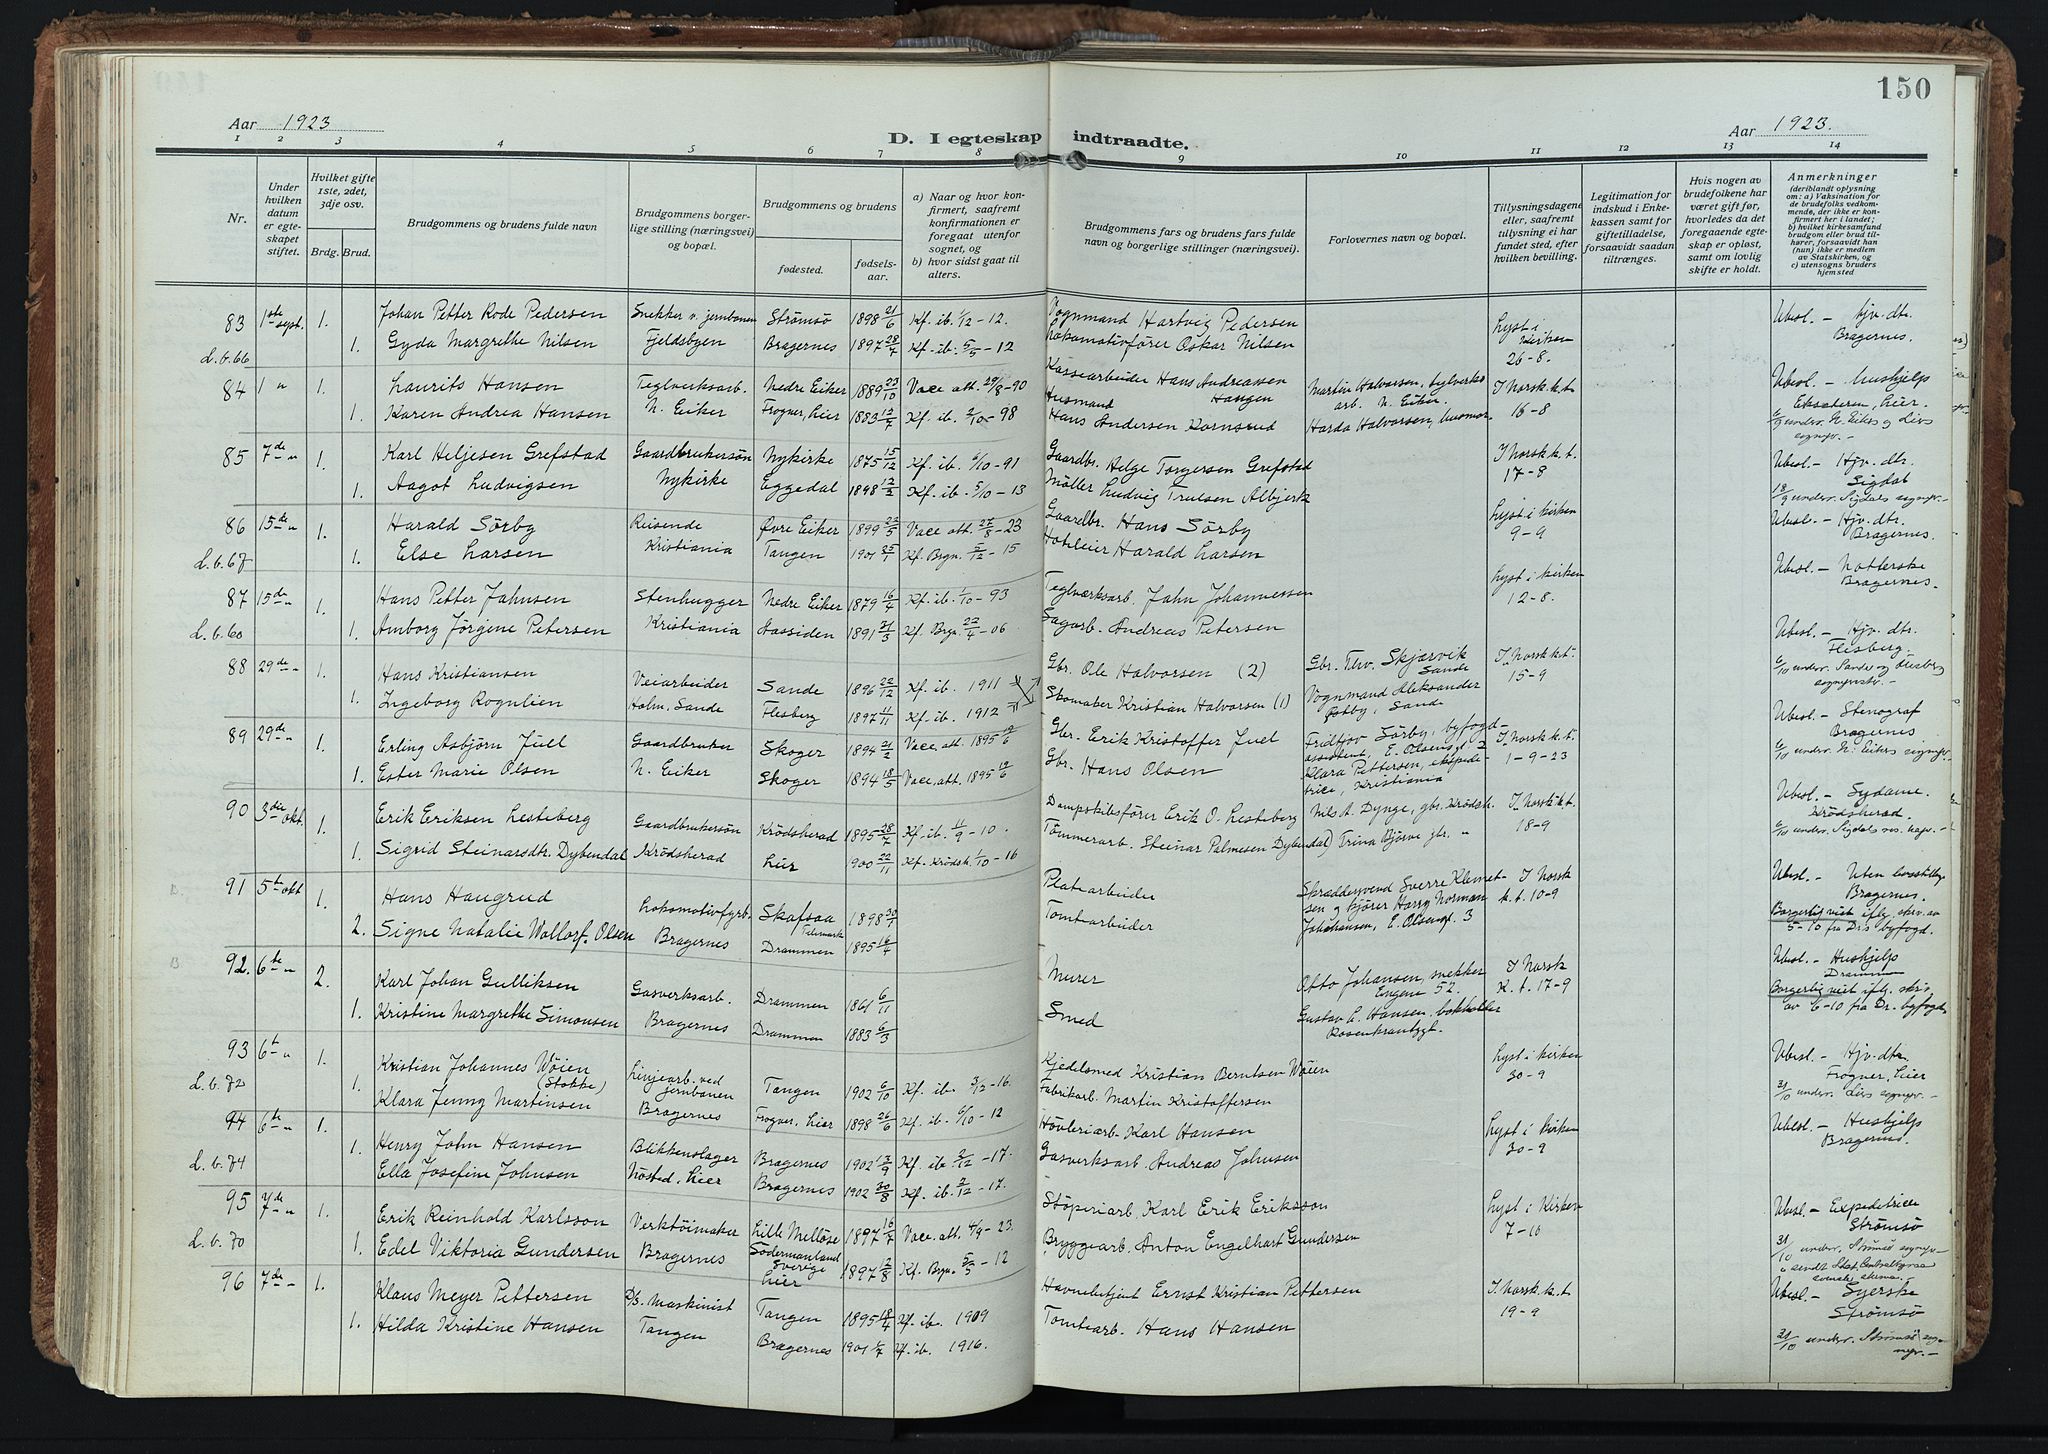 150
Aar 1923
D. I egteskap indtraadte.
Aar 1923.
1 2 3 4 5 6 7 8 9 10 11 12 13 14
Nr.
Under hvilken datum er egteskapet stiftet.
Hvilket gifte 1ste, 2det, 3dje osv.
Brdg. Brud.
Brudgommens og brudens fulde navn
Brudgommens borgerlige stilling (næringsvei) og bopæl.
Brudgommens og brudens
fødested.
fødselsaar.
a) Naar og hvor konfirmert, saafremt konfirmationen er foregaat utenfor sognet, og
b) hvor sidst gaat til alters.
Brudgommens fars og brudens fars fulde navn og borgerlige stillinger (næringsvei).
Forlovernes navn og bopæl.
Tillysningsdagene eller, saafremt tillysning ei har fundet sted, efter hvilken bevilling.
Legitimation for indskud i Enkekassen samt for giftetilladelse, forsaavidt saadan tiltrænges.
Hvis nogen av brudefolkene har været gift før, hvorledes da det foregaaende egteskap er opløst, samt om lovlig skifte er holdt.
Anmerkninger
(deriblandt oplysning om: a) Vaksination for de brudefolks vedkommende, der ikke er konfirmert her i landet; b) hvilket kirkesamfund brudgom eller brud tilhører, forsaavidt han (hun) ikke er medlem av Statskirken, og c) utensogns bruders hjemsted
83 1ste sept. 1. Johan Petter Rode Pedersen Snekker v. jernbanen Strømsø 1898 21/6 Kf. ib. 1/12 - 12. Vognmand Hartvig Pedersen Lyst i kirken 26-8. Ubesl. - Hjv. dtr. Bragernes.
L.b. 66 1. Gyda Margrethe Nilsen Fjeldsbyen Bragernes 1897 28/4 Kf. ib. 5/5 - 12 Lokomotivfører Oskar Nilsen
84 1 " 1. Laurits Hansen Teglverksarb. Nedre Eiker 1889 23/10 Vace. att. 29/8 - 90 Kassearbeider Hans Andreassen Haugen Martin Halvorsen, teglverksarb. N. Eiker. I Norsk k.t. 16-8 Ubesl. - Hushjelp
1. Karen Andrea Hansen N. Eiker Frogner, Lier 1883 12/7 Kf. ib. 2/10 - 98 Husmand Hans Andersen Kornsrud Harda Halvorsen, husmor
85 7de " 1. Karl Heljesen Grefstad Gaardbrukersøn Nykirke 1875 15/12 Kf. ib. 6/10 - 91 Gaardbr. Helge Torgersen Grefstad I Norsk k.t. 17-8 Ubesl. - Hjv. dtr. Sigdal
1. Aagot Ludvigsen Nykirke Eggedal 1898 12/2 Kf. ib. 5/10 - 13 Møller Ludvig Trulsen Albjerk 18/9 underr. Sigdals sognpr. -
86 15de " 1. Harald Sørby Reisende Øvre Eiker 1899 22/5 Vace att. 27/8 - 23 Gaardbr. Hans Sørby Lyst i kirken 9-9 Ubesl. - Hjv. dtr. Bragernes.
L.b. 67 1. Else Larsen Kristiania Tangen 1901 25/7 Kf. Bragn. 5/12 - 15 Hoteleier Harald Larsen
87 15de " 1. Hans Petter Jahnsen Stenhugger Nedre Eiker 1879 16/4 Kf. ib. 1/10 - 93 Teglværksarb. Jahn Johannessen Lyst i kirken 12-8. Ubesl. - Bragernes.
L.b. 60 1. Amborg Jørgine Petersen Kristiania Aassiden 1891 31/3 Kf. Bragn. 22/4 - 06 Sagarb. Andreas Petersen
88 29de " 1. Hans Kristiansen Veiarbeider Sande 1896 22/12 Kf. ib. 1911 Gbr. Ole Halvorsen (2) Gbr. Thv. Skjærvik Sande I Norsk k.t. 15-9 Ubesl. - Hjv. dtr. Flesberg -
1. Ingeborg Rognlien Holm, Sande Flesberg 1897 11/11 Kf. ib. 1912 Skomaker Kristian Halvorsen (1) Vognmand Aleksander Østby, Sande 6/10 underr. Sande og Flesberg
89 29de " 1. Erling Asbjørn Juel Gaardbruker Skoger 1894 21/2 Vace. att. 1895 Gbr. Erik Kristoffer Juel Fridtjov Sørby, byfogdassistent, E. Olsensgt. 2 I Norsk k.t. 1-9-23 Ubesl. - Stenograf Bragernes
1. Ester Marie Olsen N. Eiker Skoger 1894 18/5 Vace. att. 1895 Gbr. Hans Olsen Klara Pettersen, ekspeditrice, Kristiania 6/10 underr. N. Eikers sognpr. -
90 3die okt. 1. Erik Eriksen Lesteberg Gaardbrukersøn Krødsherad 1895 28/7 Kf. ib. 11/9 - 10. Dampskibsfører Erik O. Lesteberg Nils A. Dynge, gbr. Krødsh. I Norsk k.t. 18-9 Ubesl. - Sydame. Krødsherad.
1. Sigrid Steinarsdtr. Dybendal Krødsherad Lier 1900 22/11 Kf. Krødsh. 1/10 - 16 Tømmerarb. Steinar Palmesen Dybendal Trina Bjøre gbr. "
91 5t okt 1. Hans Haugrud Lokomotivfyrb. Skafsaa Telemark 1898 30/7 Platearbeider Skræddersvend Sverre Klemetsen og kjører Harry Norman Johannsen, E. Olsensgt. 3 I Norsk k.t. 10-9 Ubesl. - Uten livsstilling Bragernes.
2. Signe Natalie Wollorf. Olsen Bragernes Drammen 1895 16/4 Tomtearbeider Borgerlig viet ifl. skr. av 5-10 fra D's byfogd.
92. 6te " 2. Karl Johan Gulliksen Gasverksarb. Drammen 1861 6/11 Murer Otto Johansen, snekker Engene 52. I Norsk K.t. 17-9 Ubesl. - Hushjelp Drammen
1. Kristine Margrethe Simonsen Bragernes Drammen 1883 6/3 Smed Gustav L. Hansen, bokholder Rosenkrantzgt. Borgerlig viet ifl. skr. av 6-10 fra Dr. byfogd.
93 6t " 1. Kristian Johannes Wøien (Stokke) Linjearb. ved jernbanen Tangen 1902 6/10 Kf. ib. 3/12 - 16. Kjedelsmed Kristian Berntsen Wøien Lyst i kirken 30-9 Ubesl. - Hjv. dtr. Frogner, Lier
L.b. 72 1. Klara Jenny Martinsen Bragernes Frogner, Lier 1898 26/6 Kf. ib. 6/10 - 12 Fabrikarb. Martin Kristoffersen 31/10 underr. Liers sognpr. -
94 6te " 1. Henry John Hansen Blikkenslager Bragernes 1902 13/9 Kf. ib. 2/12 - 17. Høvleriarb. Karl Hansen Lyst i kirken 30-9 Ubesl. - Hushjelp Bragernes.
L.b. 74 1. Ella Josefine Johnsen Nøsted, Lier Bragernes 1902 30/8 Kf. ib. 2/12 - 17. Gasverksarb. Andreas Johnsen
95 7de " 1. Erik Reinhold Karlsson Verktøimaker Lille Mellösa Södermanland Sverige 1897 16/7 Vace. att. 4/9 - 23. Støperiarb. Karl Erik Eriksson Lyst i Kirken 7-10 Ubesl. - Expeditrice Strømsø
L.b. 70 1. Edel Viktoria Gundersen Bragernes Lier 1897 12/8 Kf. Bragn. 5/5 - 12 Bryggearb. Anton Engelhart Gundersen 31/10 underr. Strømsø sognpr.
96 7de - 1. Klaus Meyer Pettersen D/s. Maskinist Tangen 1895 18/4 Kf. ib. 1909 Havnebetjent Ernst Kristian Pettersen I Norsk. k.t 19-9 Ubesl. - Syerske Strømsø
1. Hilda Kristine Hansen Tangen Bragernes 1901 1/7 Kf. ib. 1916. Tomtearb. Hans Hansen 31/10 underr. Strømsø sognepr. -